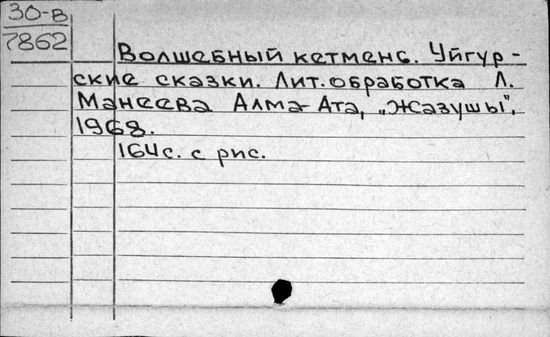 30-в
7862
Волшебный кетмень. Уйгур-
ские сказки. Лит.обработка Л.
Манеева Алма-Ата, „Жазушы",
1968.
164с. с рис.